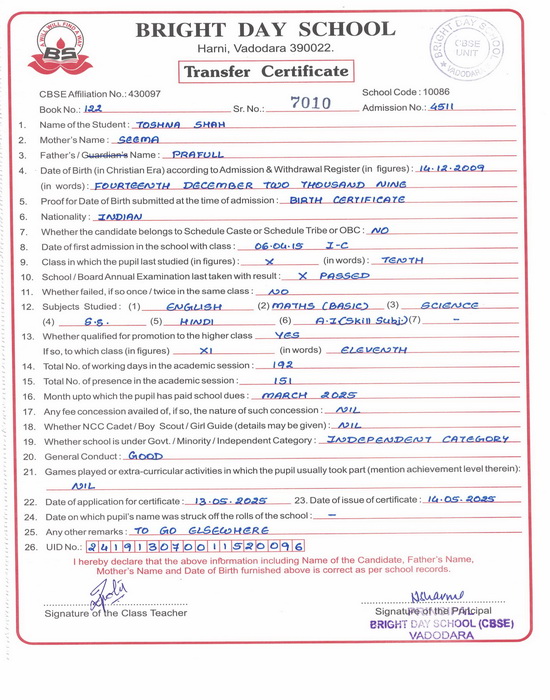 A WILL WILL FIND A WAY
BS
BRIGHT DAY SCHOOL
Harni, Vadodara 390022.
BRIGHT DAY SCHOOL
CBSE
UNIT
VADODARA
Transfer Certificate
CBSE Affiliation No.: 430097 School Code : 10086
Book No.: 122 Sr. No.: 7010 Admission No.: 4511
1. Name of the Student : TOSHNA SHAH
2. Mother's Name : SEEMA
3. Father's / Guardian's Name : PRAFULL
4. Date of Birth (in Christian Era) according to Admission & Withdrawal Register (in figures) : 14.12.2009
(in words) : FOURTEENTH DECEMBER TWO THOUSAND NINE
5. Proof for Date of Birth submitted at the time of admission : BIRTH CERTIFICATE
6. Nationality : INDIAN
7. Whether the candidate belongs to Schedule Caste or Schedule Tribe or OBC : NO
8. Date of first admission in the school with class : 06.04.15 I-C
9. Class in which the pupil last studied (in figures) : X (in words) : TENTH
10. School / Board Annual Examination last taken with result : X PASSED
11. Whether failed, if so once / twice in the same class : NO
12. Subjects Studied : (1) ENGLISH (2) MATHS (BASIC) (3) SCIENCE
(4) S.S. (5) HINDI (6) A.I (Skill Subj.) (7) -
13. Whether qualified for promotion to the higher class YES
If so, to which class (in figures) XI (in words) ELEVENTH
14. Total No. of working days in the academic session : 192
15. Total No. of presence in the academic session : 151
16. Month upto which the pupil has paid school dues : MARCH 2025
17. Any fee concession availed of, if so, the nature of such concession : NIL
18. Whether NCC Cadet / Boy Scout / Girl Guide (details may be given) : NIL
19. Whether school is under Govt. / Minority / Independent Category : INDEPENDENT CATEGORY
20. General Conduct : GOOD
21. Games played or extra-curricular activities in which the pupil usually took part (mention achievement level therein):
NIL
22. Date of application for certificate : 13.05.2025 23. Date of issue of certificate : 14.05.2025
24. Date on which pupil's name was struck off the rolls of the school : -
25. Any other remarks : TO GO ELSEWHERE
26. UID No.: 241913070011520096
I hereby declare that the above information including Name of the Candidate, Father's Name,
Mother's Name and Date of Birth furnished above is correct as per school records.
Signature of the Class Teacher Signature of the Principal
BRIGHT DAY SCHOOL (CBSE)
VADODARA